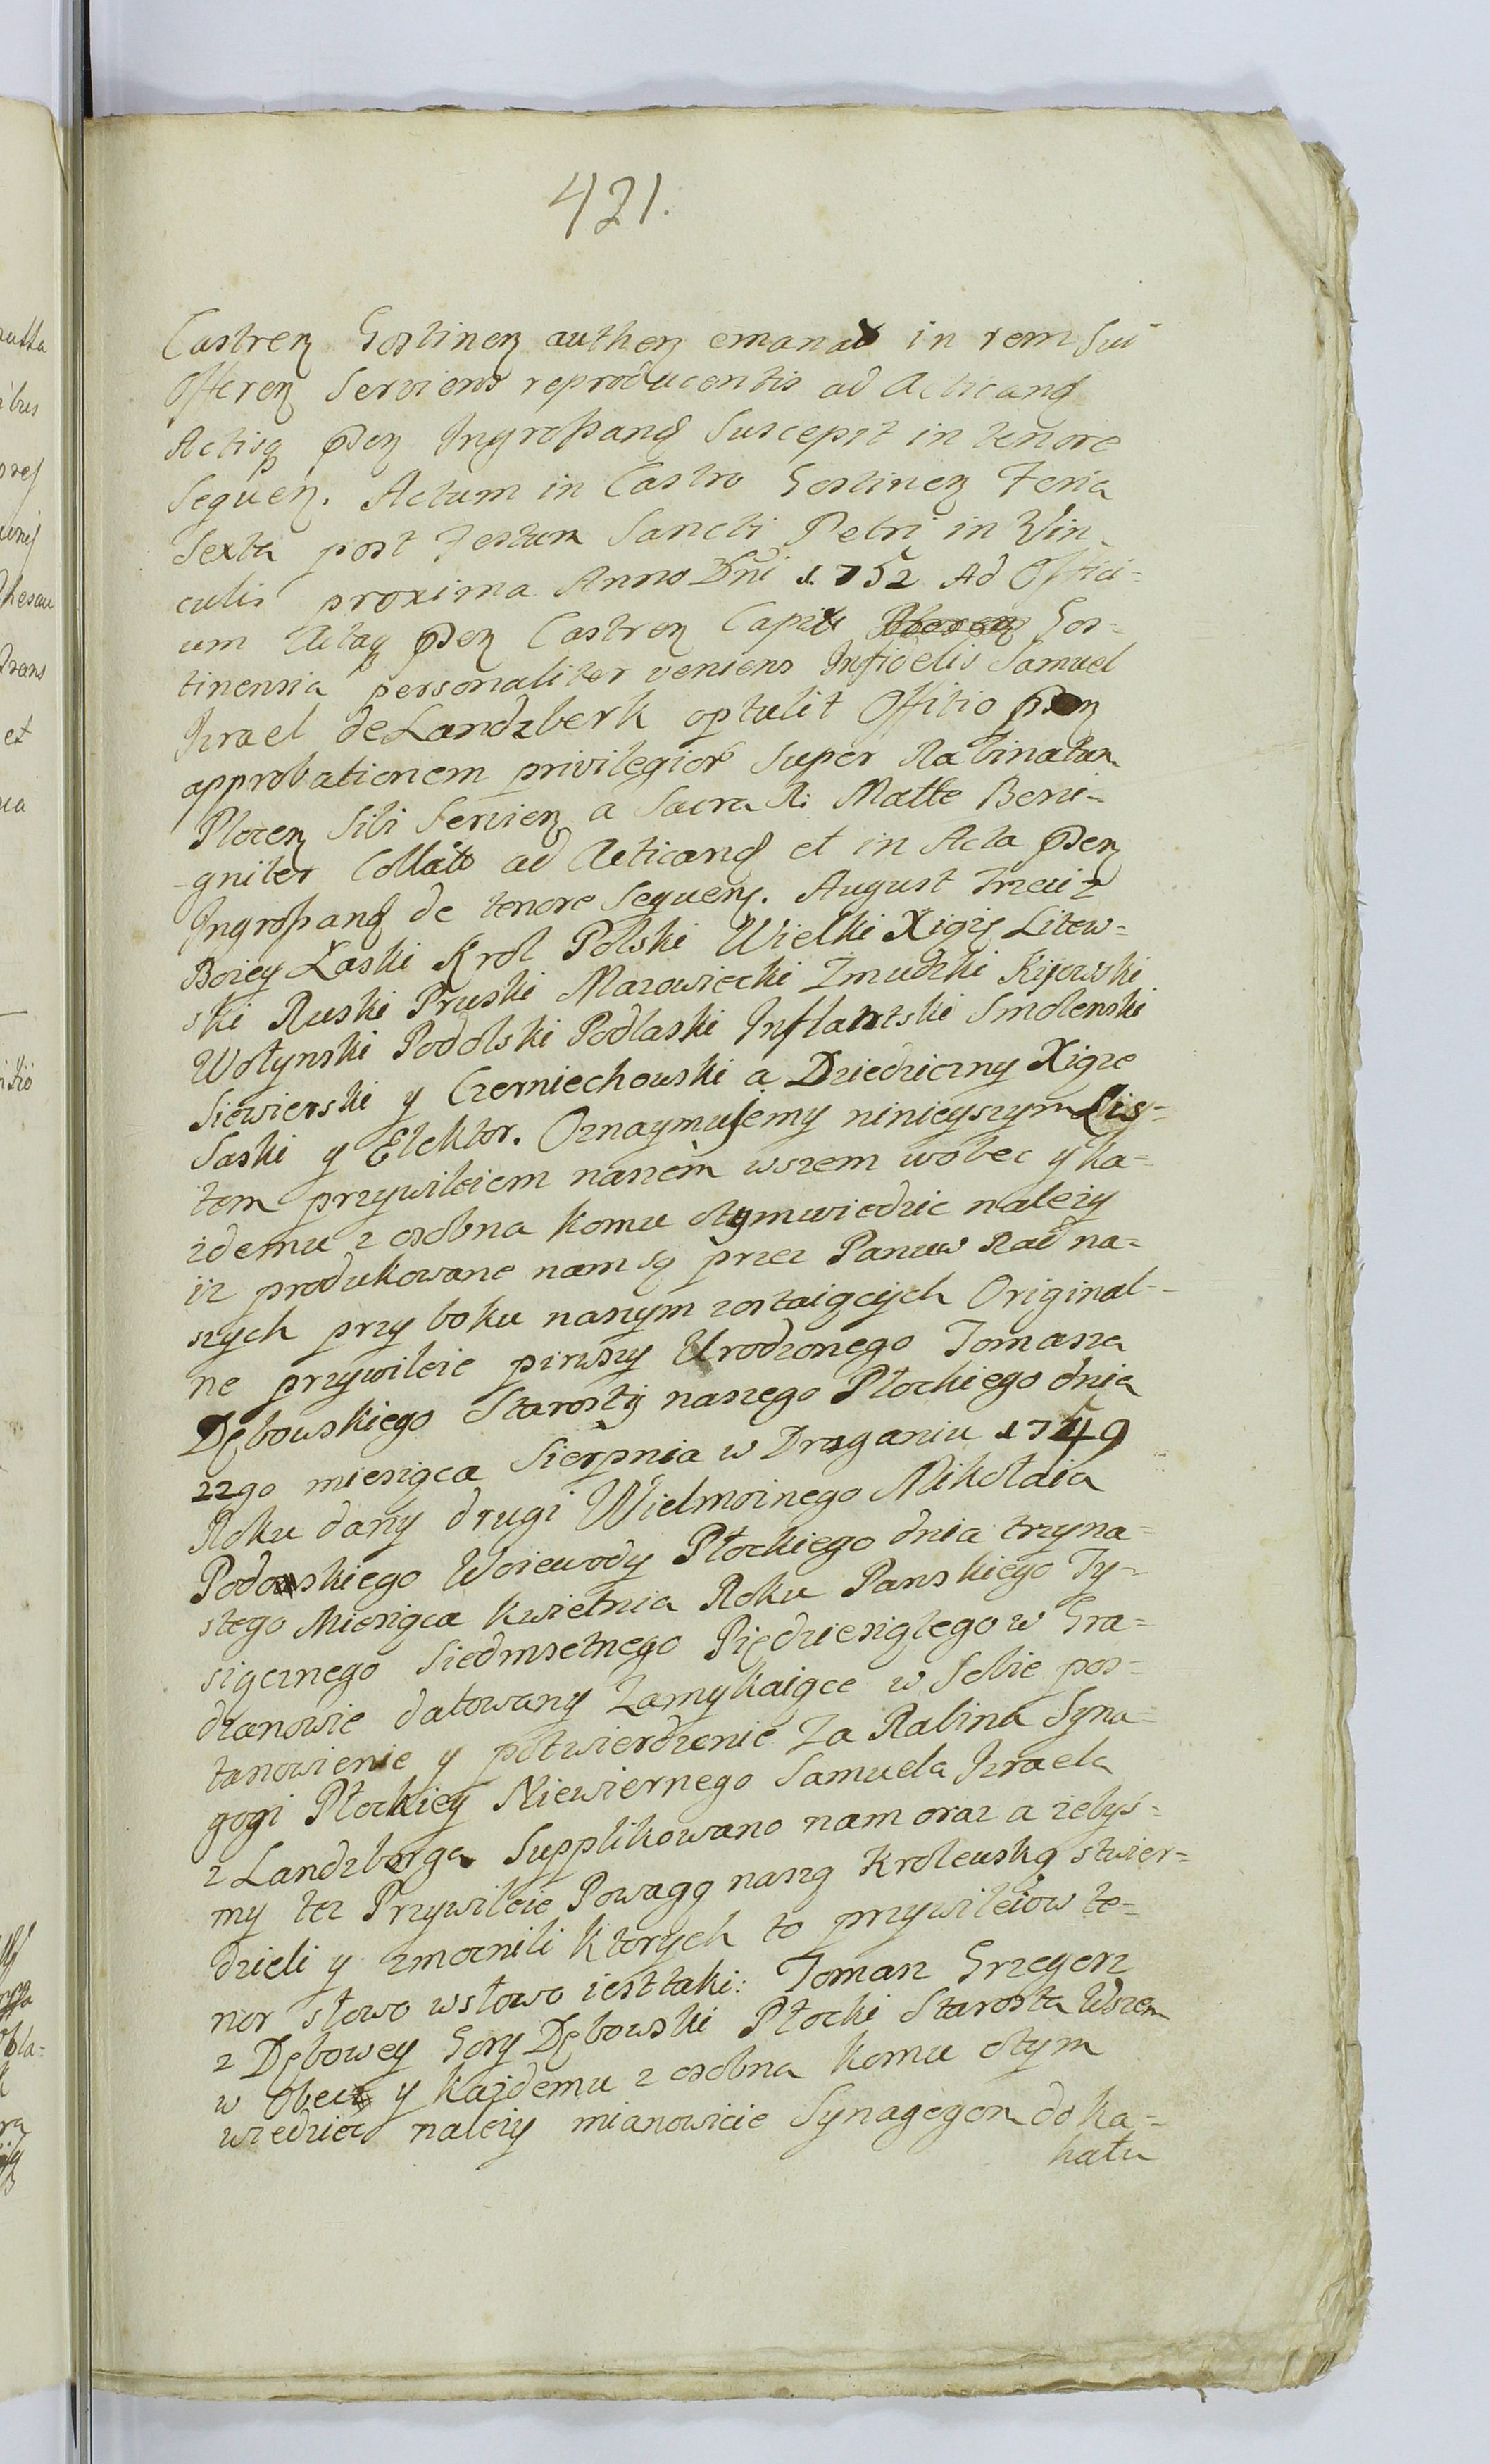 421.
Castren Gostinen authen emanat in rem sui
Offeren Serviens reproducentis ad Acticand
Actisq pden Ingrossand Suscepit in tenore
Sequen. Actum in Castro Gostinen Feria
Sexta post Festum Sancti Petri in Vin
culis proxima Anno Dni 1752 Ad Offici=
um Actaq pden Castren Capit Gos=
tinensia personaliter veniens Infidelis Samuel
Izrael de Landzberk optulit Offitio pden
approbationem privilegior Super Rabinatum
Plocen Sibi Servien a Sacra R: Matte Beni=
-gniter Collato ad Acticand et in Acta pden
Ingrossand de tenore Sequen. August Trzeci z
Bozey Łaski Krol Polski Wielki Xiąze Litew=
ski Ruski Pruski Mazowiecki Zmudzki Kijowski
Wołynski Podolski Podlaski Inflantski Smolenski
Siewierski y Czerniechowski a Dziedziczny Xiąze
Saski y Elektor. Oznaymujemy ninieyszym Lis=
tem przywileiem naszem wszem wobec y ka=
zdemu z osobna komu otym wiedzic nalezy
iz produkowane nam są przez Panuw Rad na=
szych przy boku naszym zostaiących Original=
ne przywileie pirwszy Urodzonego Tomasza
Dębowskiego Starosty naszego Płockiego dnia
22go miesiąca Sierpnia w Draganiu 1749
Roku dany drugi Wielmoznego Mikołaia
Podoskiego Woiewody Płockiego dnia trzyna=
stego Miesiąca Kwietnia Roku Panskiego Ty=
siącznego Siedmsetnego Piędziesiątego w Gra=
dzanowie datowany Zamykaiące w Sobie pos=
tanowienie y potwierdzenie Za Rabina Syna=
gogi Płockiey Niewiernego Samuela Izraela
z Landzberga Supplikowano nam oraz a zebys=
my tez Przywileie Powagą naszą Krolewską stwier=
dzieli y zmocnili Ktorych to przywileiow te=
nor słowo wsłowo iest taki: Tomasz Grzegorz
z Dębowey Gory Dębowski Płocki Starosta Wszem
w Obec y Kazdemu z osobna komu otym
wiedziec nalezy mianowicie Synagogom do ka=
hału